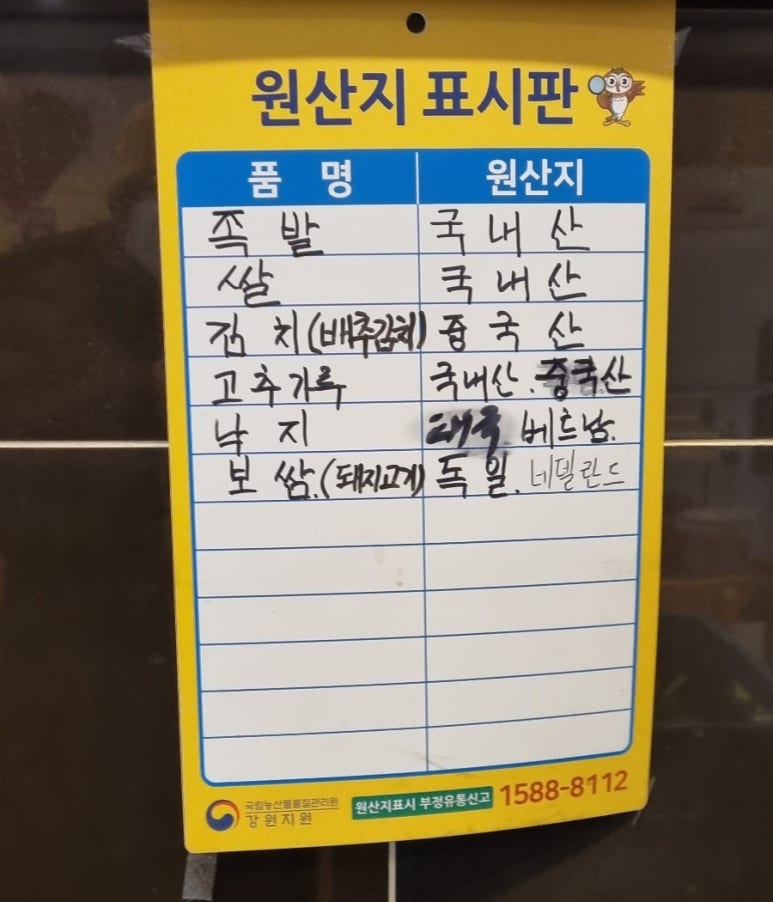 원산지 표시판
품 명 원산지
족 발 국 내 산
쌀 국 내 산
김 치 (배추김치) 중 국 산
고추가루 국내산. 중국산
낙 지 태국 베트남.
보 쌈. (돼지고기) 독 일. 네델란드
국립농산물품질관리원
강원지원
원산지표시 부정유통신고 1588-8112